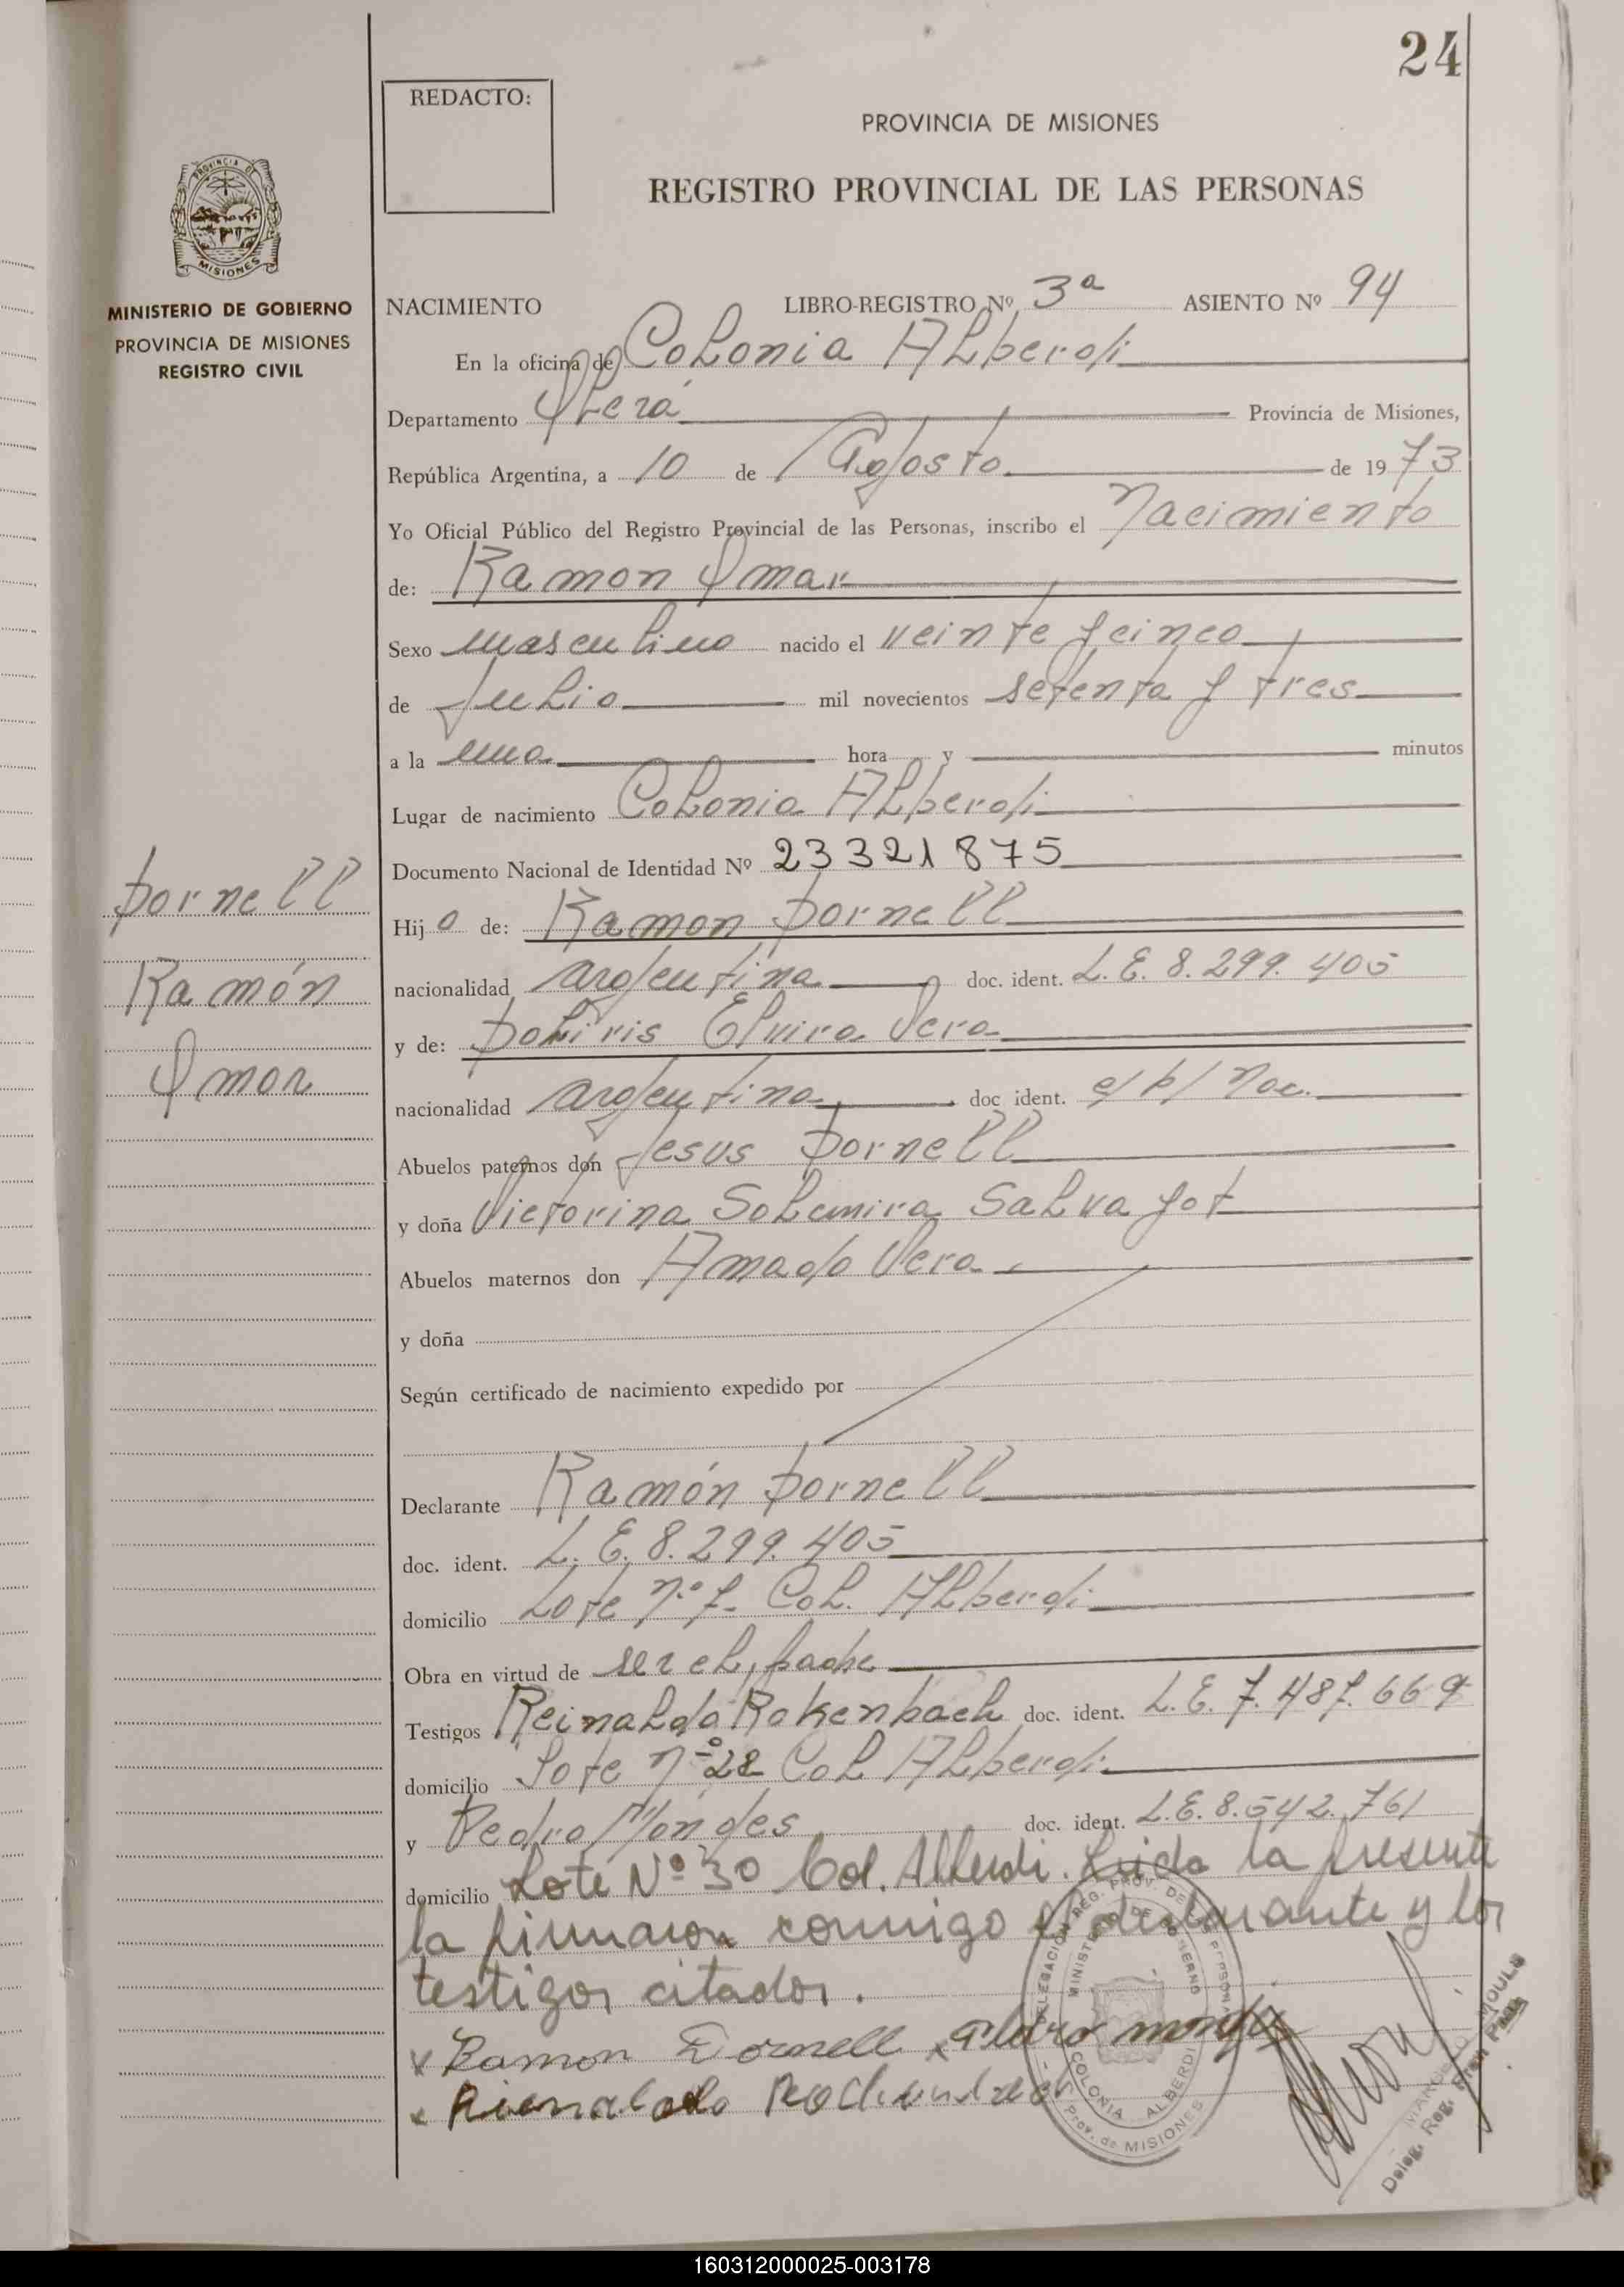 24
REDACTO:
PROVINCIA DE MISIONES
REGISTRO PROVINCIAL DE LAS PERSONAS
PROVINCIA DE
MISIONES
MINISTERIO DE GOBIERNO
PROVINCIA DE MISIONES
REGISTRO CIVIL
NACIMIENTO LIBRO-REGISTRO Nº 3ª ASIENTO Nº 94
En la oficina de Colonia Alberdi
Departamento Oberá Provincia de Misiones,
República Argentina, a 10 de Agosto de 1973
Yo Oficial Público del Registro Provincial de las Personas, inscribo el Nacimiento
de: Ramon Omar
Sexo masculino nacido el veinte y cinco
de Julio mil novecientos setenta y tres
a la una hora y minutos
Lugar de nacimiento Colonia Alberdi
Documento Nacional de Identidad Nº 23321875
Dornell
Hijo de: Ramon Dornell
Ramón
nacionalidad argentina doc. ident. L. E. 8.299.405
y de: Doliris Elvira Vera
Omar
nacionalidad argentina doc. ident. e/b/ Noc.
Abuelos paternos don Jesus Dornell
y doña Victorina Solemira Salva
Abuelos maternos don Amado Vera
y doña
Según certificado de nacimiento expedido por
Declarante Ramón Dornell
doc. ident. L. E. 8.299.405
domicilio Lote n.º 7- Col. Alberdi
Obra en virtud de ser el padre
Testigos Reinaldo Rokenbach doc. ident. L.E. 7.487.669
domicilio Lote nº 28 Col Alberdi
y Pedro Mondes doc. ident. L.E. 8.542.761
domicilio Lote Nº 30 Col. Alberdi. Leida la presente
la firmaron conmigo el declarante y los
testigos citados.
x Ramon Dornell x
x
DELEGACION REG. PROV. DE LAS PERSONAS
MINISTERIO DE GOBIERNO
COLONIA ALBERDI
Prov. de MISIONES
Deleg. Reg.
160312000025-003178